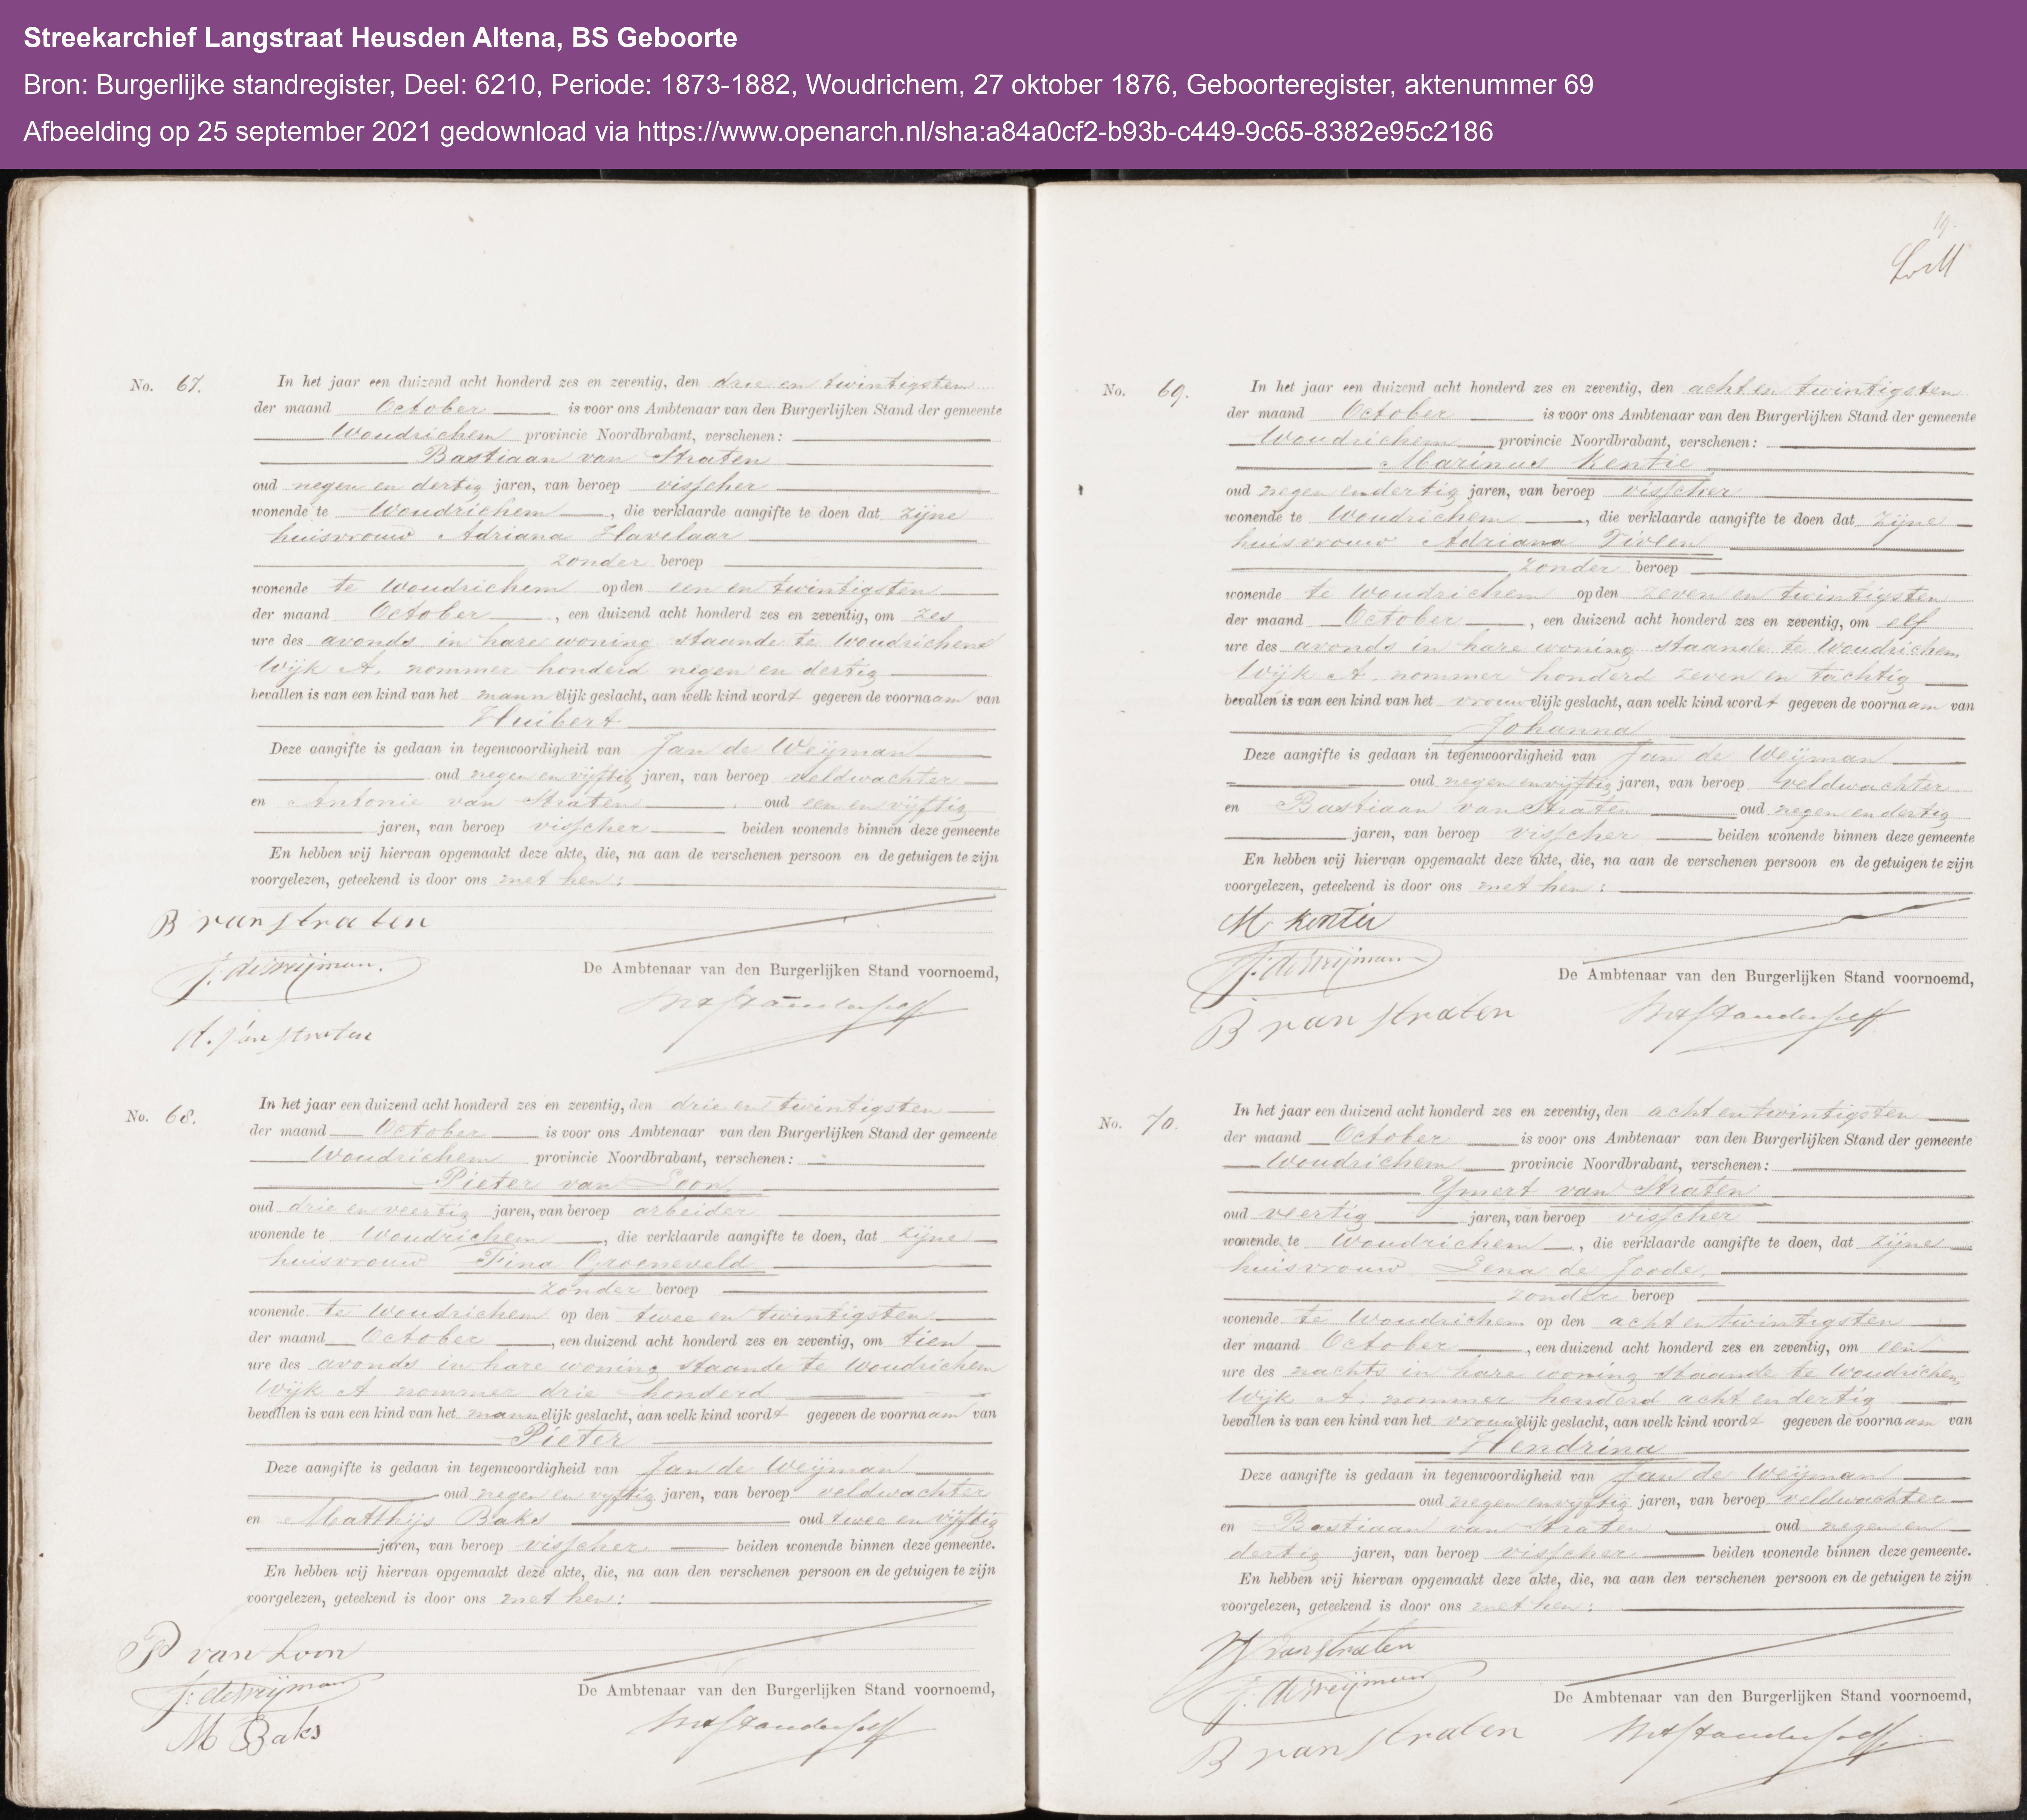 Streekarchief Langstraat Heusden Altena, BS Geboorte
Bron: Burgerlijke standregister, Deel: 6210, Periode: 1873-1882, Woudrichem, 27 oktober 1876, Geboorteregister, aktenummer 69
Afbeelding op 25 september 2021 gedownload via https://www.openarch.nl/sha:a84a0cf2-b93b-c449-9c65-8382e95c2186
No. 67. In het jaar een duizend acht honderd zes en zeventig, den drie en twintigsten
der maand October is voor ons Ambtenaar van den Burgerlijken Stand der gemeente
Woudrichem provincie Noordbrabant, verschenen:
Bastiaan van Straten
oud negen en dertig jaren, van beroep visscher
wonende te Woudrichem, die verklaarde aangifte te doen dat zijne
huisvrouw Adriana Havelaar
zonder beroep
wonende te Woudrichem op den een en twintigsten
der maand October, een duizend acht honderd zes en zeventig, om zes
ure des avonds in hare woning staande te Woudrichem
Wijk A. nommer honderd negen en dertig
bevallen is van een kind van het mannelijk geslacht, aan welk kind wordt gegeven de voornaam van
Huibert
Deze aangifte is gedaan in tegenwoordigheid van Jan de Weijman
oud negen en vijftig jaren, van beroep veldwachter
en Antonie van Straten oud een en vijftig
jaren, van beroep visscher beiden wonende binnen deze gemeente
En hebben wij hiervan opgemaakt deze akte, die, na aan de verschenen persoon en de getuigen te zijn
voorgelezen, geteekend is door ons met hen:
B van straten
J. de Weijman.
De Ambtenaar van den Burgerlijken Stand voornoemd,
A. van straten
No. 68. In het jaar een duizend acht honderd zes en zeventig, den drie en twintigsten
der maand October is voor ons Ambtenaar van den Burgerlijken Stand der gemeente
Woudrichem provincie Noordbrabant, verschenen:
Pieter van Loon
oud drie en veertig jaren, van beroep arbeider
wonende te Woudrichem, die verklaarde aangifte te doen, dat zijne
huisvrouw Fina Groeneveld
zonder beroep
wonende te Woudrichem op den twee en twintigsten
der maand October, een duizend acht honderd zes en zeventig, om tien
ure des avonds in hare woning staande te Woudrichem
Wijk A nommer drie honderd
bevallen is van een kind van het mannelijk geslacht, aan welk kind wordt gegeven de voornaam van
Pieter
Deze aangifte is gedaan in tegenwoordigheid van Jan de Weijman
oud negen en vijftig jaren, van beroep veldwachter
en Matthijs Baks oud twee en vijftig
jaren, van beroep visscher. beiden wonende binnen deze gemeente.
En hebben wij hiervan opgemaakt deze akte, die, na aan den verschenen persoon en de getuigen te zijn
voorgelezen, geteekend is door ons met hen:
P van Loon
J: de Weijman
De Ambtenaar van den Burgerlijken Stand voornoemd,
M Baks
19.
No. 69. In het jaar een duizend acht honderd zes en zeventig, den acht en twintigsten
der maand October is voor ons Ambtenaar van den Burgerlijken Stand der gemeente
Woudrichem provincie Noordbrabant, verschenen:
Marinus Kentie
oud negen en dertig jaren, van beroep visscher
wonende te Woudrichem, die verklaarde aangifte te doen dat zijne
huisvrouw Adriana
zonder beroep
wonende te Woudrichem op den zeven en twintigsten
der maand October, een duizend acht honderd zes en zeventig, om elf
ure des avonds in hare woning staande te Woudrichem,
Wijk A. nommer honderd zeven en tachtig
bevallen is van een kind van het vrouwelijk geslacht, aan welk kind wordt gegeven de voornaam van
Johanna
Deze aangifte is gedaan in tegenwoordigheid van Jan de Weijman
oud negen en vijftig jaren, van beroep veldwachter
en Bastiaan van Straten oud negen en dertig
jaren, van beroep visscher beiden wonende binnen deze gemeente
En hebben wij hiervan opgemaakt deze akte, die, na aan de verschenen persoon en de getuigen te zijn
voorgelezen, geteekend is door ons met hen:
M kentie
J. de Weijman
De Ambtenaar van den Burgerlijken Stand voornoemd,
B van straten
No. 70. In het jaar een duizend acht honderd zes en zeventig, den acht en twintigsten
der maand October is voor ons Ambtenaar van den Burgerlijken Stand der gemeente
Woudrichem provincie Noordbrabant, verschenen:
Ymert van Straten
oud veertig jaren, van beroep visscher
wonende te Woudrichem, die verklaarde aangifte te doen, dat zijne
huisvrouw Lena de Joode,
zonder beroep
wonende te Woudrichem op den acht en twintigsten
der maand October, een duizend acht honderd zes en zeventig, om een
ure des nachts in hare woning staande te Woudrichem,
Wijk A. nommer honderd acht en dertig
bevallen is van een kind van het vrouwelijk geslacht, aan welk kind wordt gegeven de voornaam van
Hendrina
Deze aangifte is gedaan in tegenwoordigheid van Jan de Weijman
oud negen en vijftig jaren, van beroep veldwachter
en Bastiaan van Straten oud negen en
dertig jaren, van beroep visscher beiden wonende binnen deze gemeente.
En hebben wij hiervan opgemaakt deze akte, die, na aan den verschenen persoon en de getuigen te zijn
voorgelezen, geteekend is door ons met hen:
Y van straten
J. de Weijman
De Ambtenaar van den Burgerlijken Stand voornoemd,
B van straten